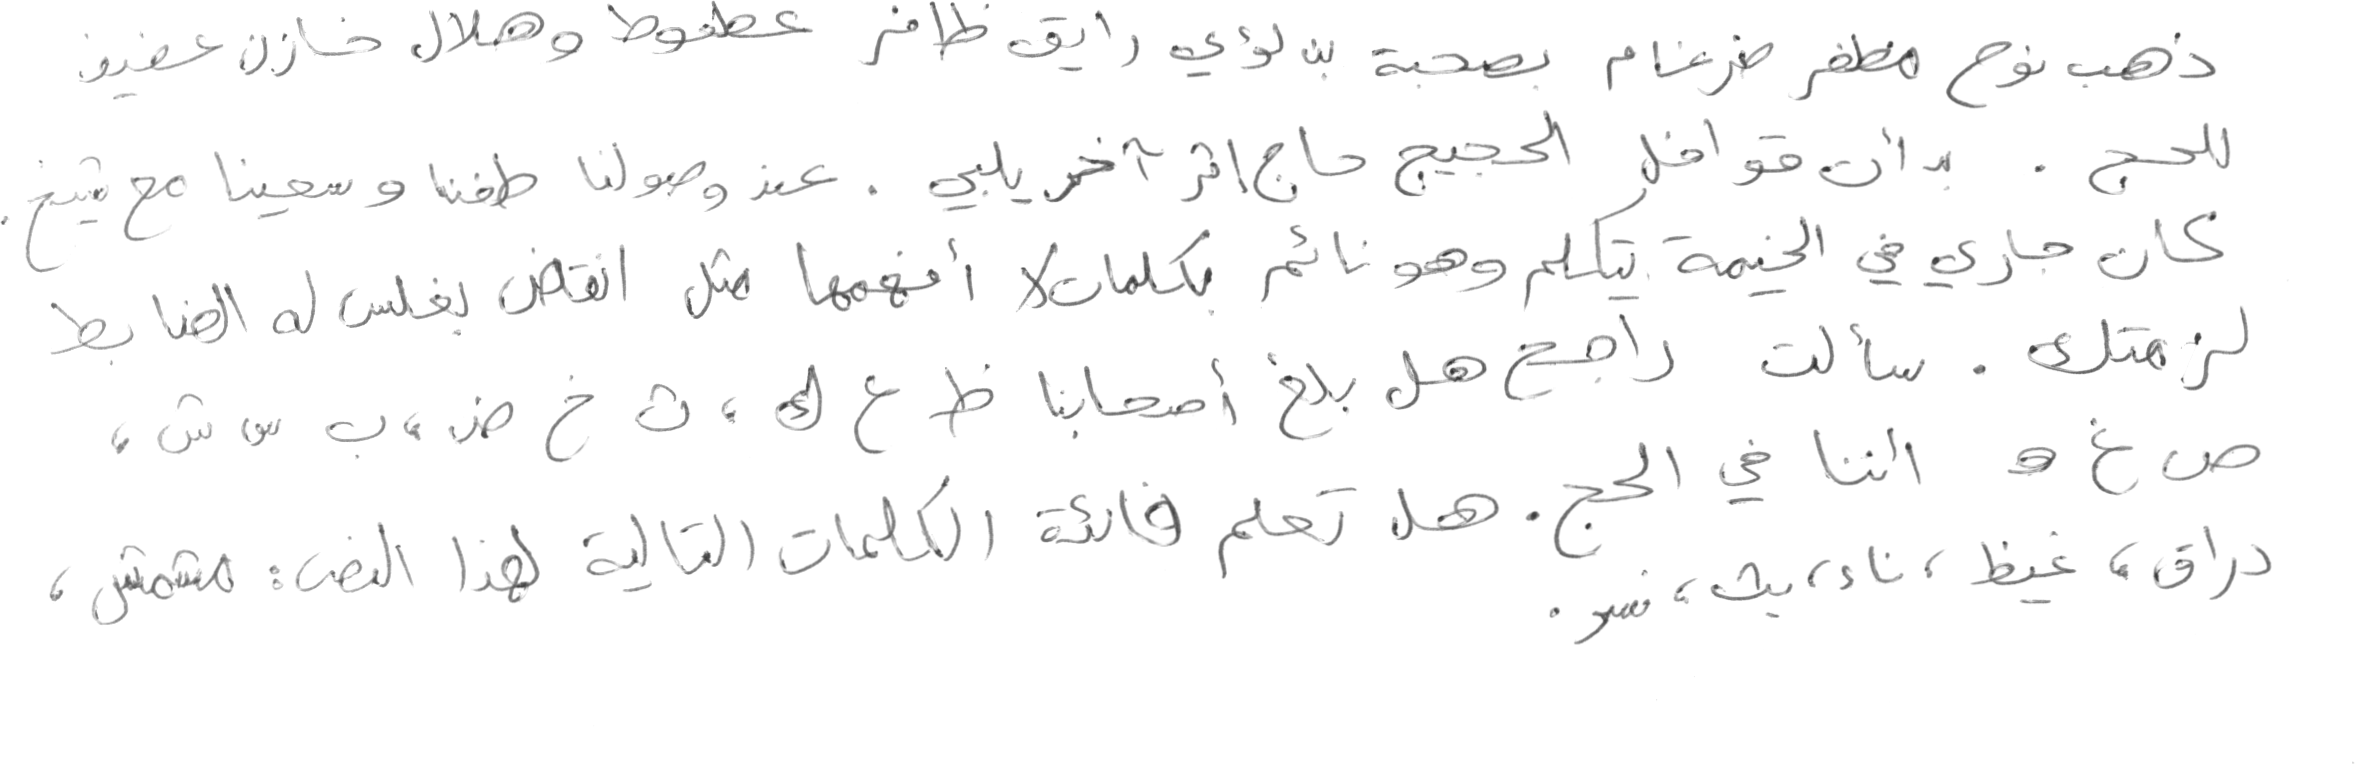 ذهب نوح مظفر ضرغام بصحبة بن لؤي رايق ظافر عطعوط وهلال خازن عفيف
للحج . بدأت قوافل الحجيج حاج إثر آخر يلبي . عند وصولنا طفنا وسعينا مع شيخ .
كان جاري في الخيمة يتكلم وهو نائم بكلمات لا أفهمها مثل انقض بغلس له الضابط
لزمتك . سألت راجح هل بلغ أصحابنا ظ ع ك ، ث خ ض ، ب س ش ،
ص غ و اننا في الحج . هل تعلم فائدة الكلمات التالية لهذا النص : مشمش ،
دراق ، غيظ ، ناء ، بث ، نسر .